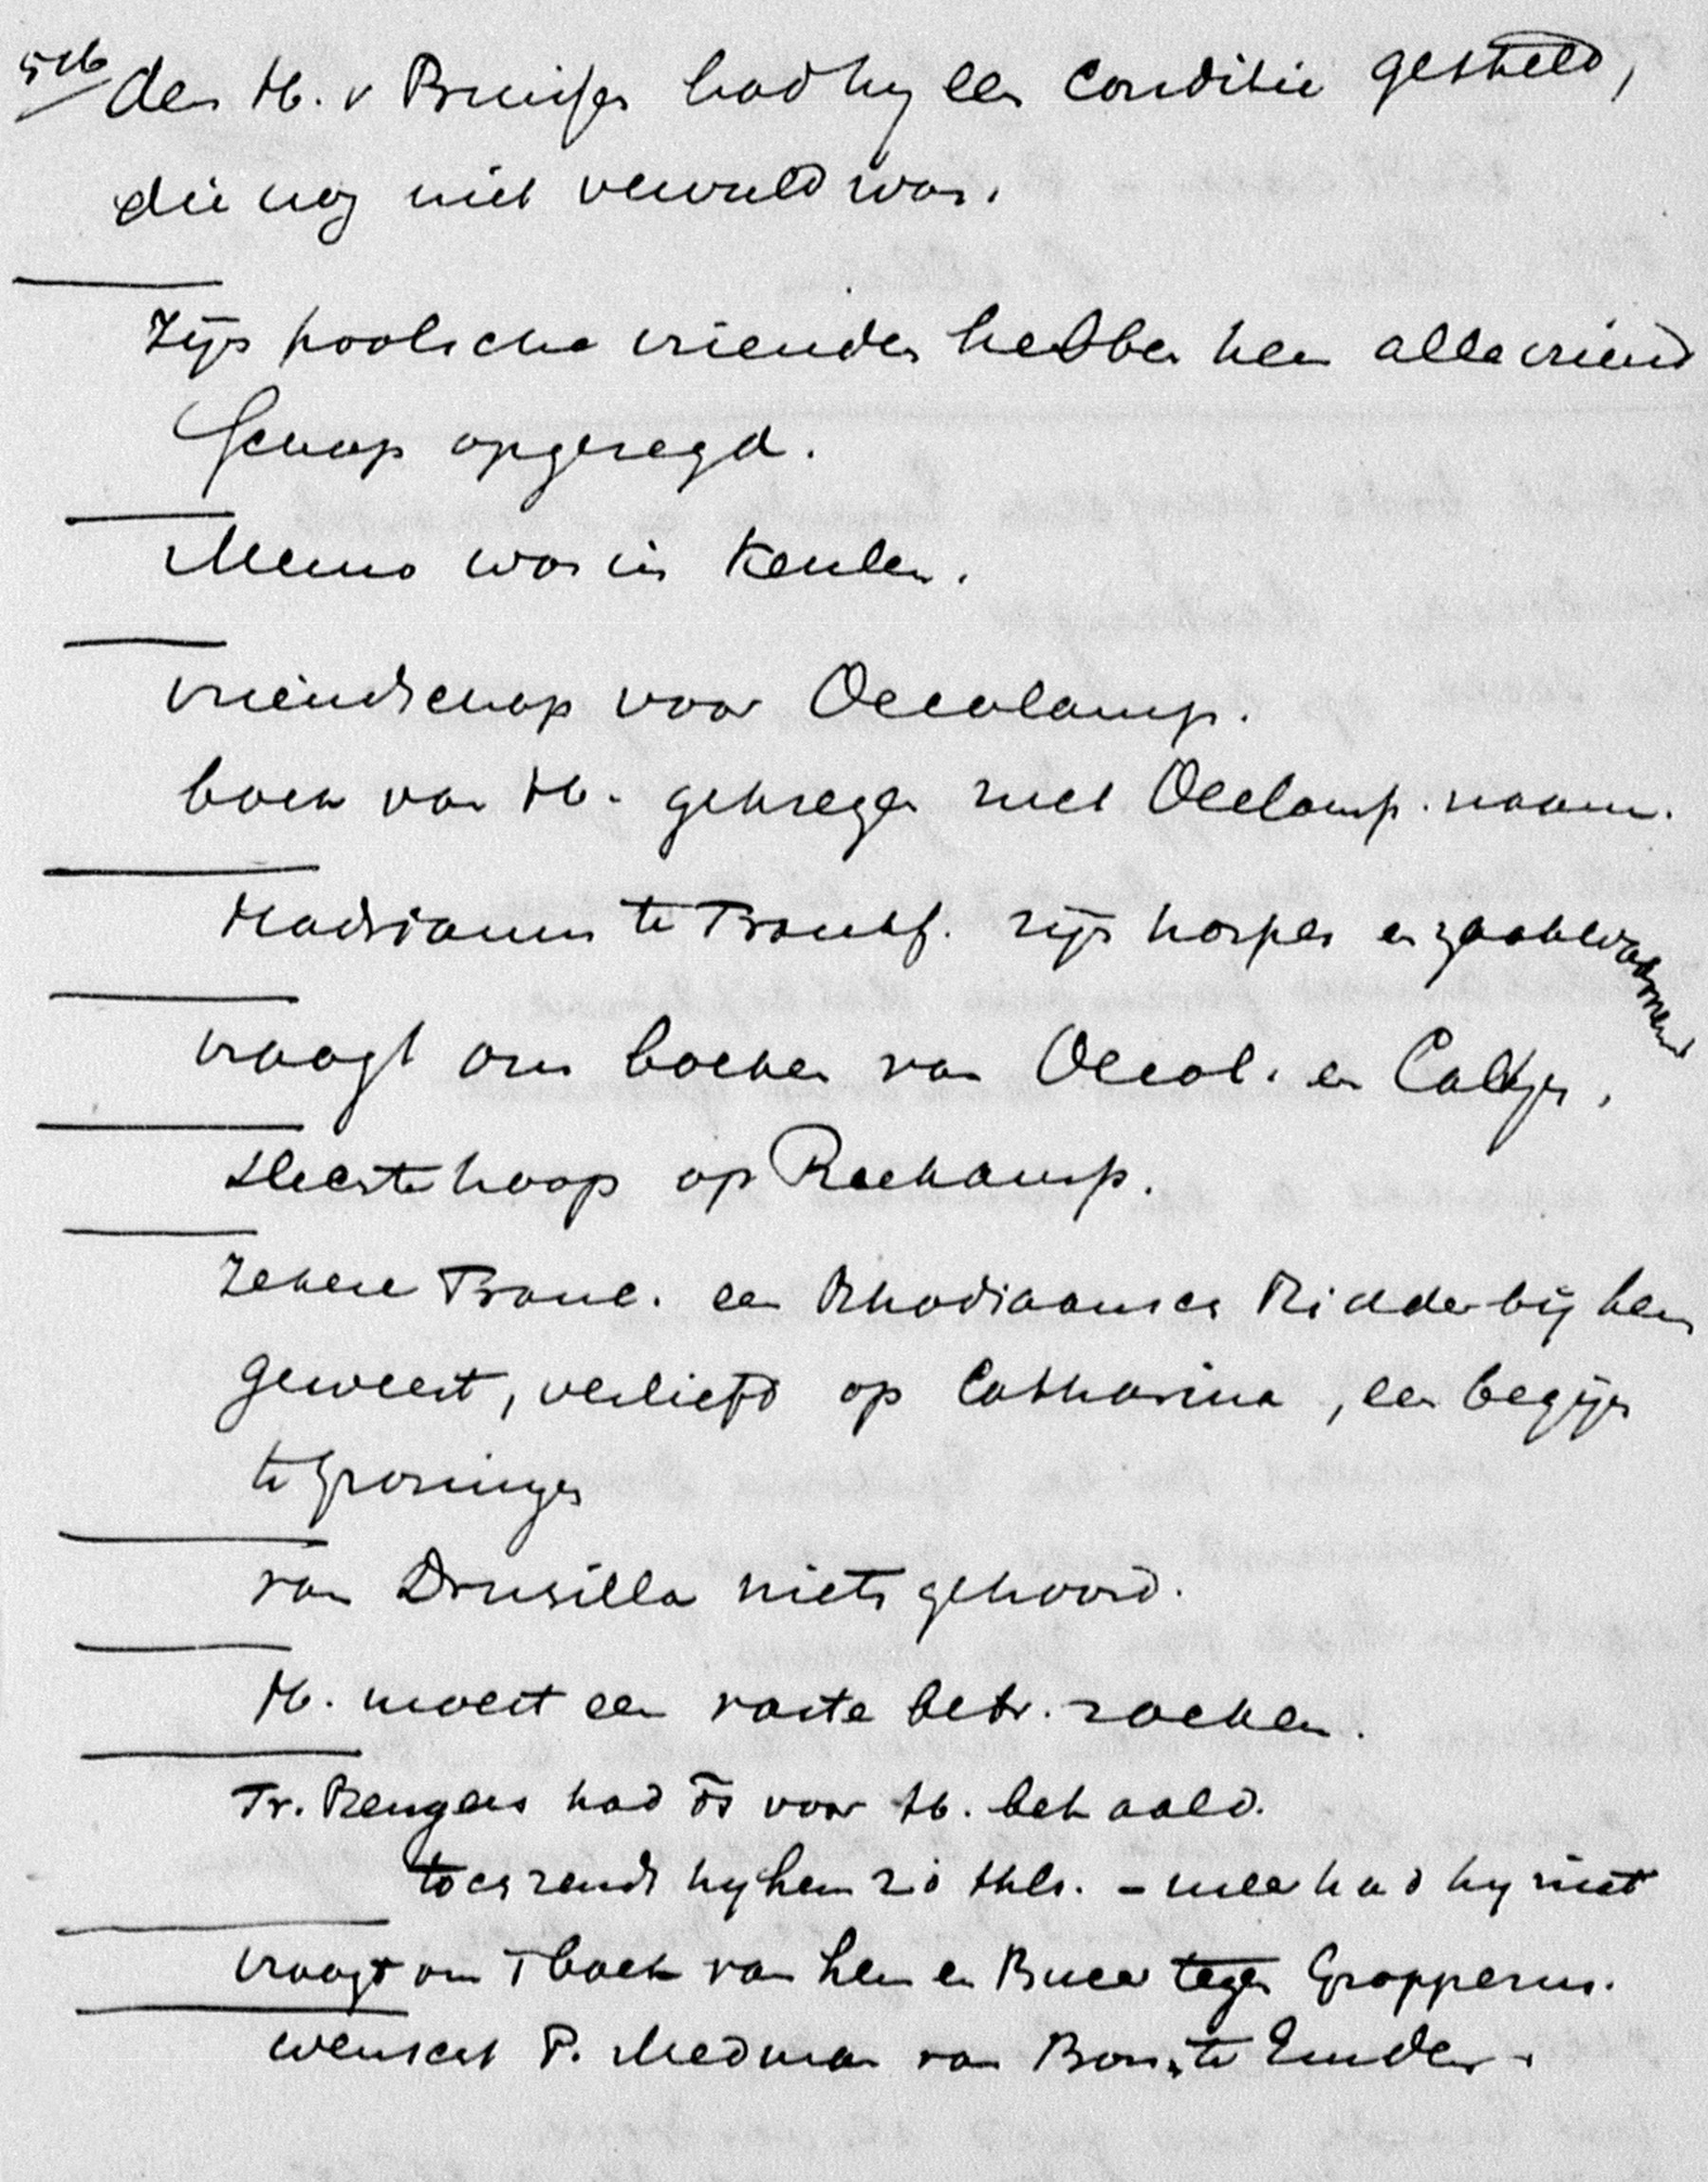 516 den H. v Pruisen had hy een Conditie gesteld,
die nog niet vervuld was.
Zijn poolsche vrienden hebben hem alle vriend
schap opgezegd.
Menno was in Keulen.
vriendschap voor Oecolamp.
boek van H. gekregen met Oecolamp. naam.
Hadrianus te Frankf. zijn hospes en zaakwaarnemer
vraagt om boeken van Oecol. en Calvijn.
Slechte hoop op Reekamp.
Zekere Franc. een Rhodiaansch Ridder bij hem
geweest, verliefd op Catharina, een begijn
te Groningen
van Drusilla niets gehoord.
H. moest een vaste betr. zoeken.
Fr. Rengers had ōs voor H. betaald.
toch zendt hy hem 20 thlr. - meer had hy niet
vraagt om 't boek van hem en Bucer tegen Gropperus.
wenscht P. Medman van Bonn te Emden.